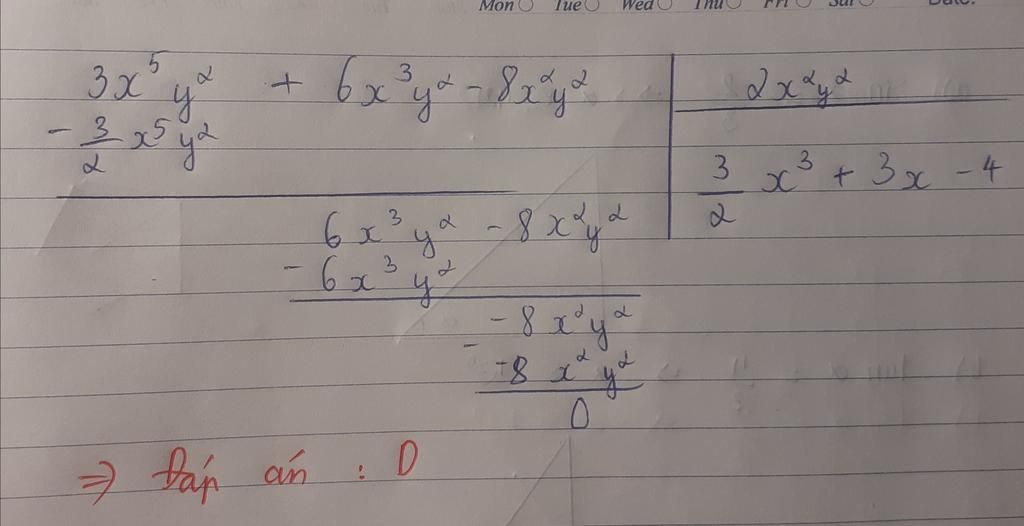 Mon Tue Wed Thu Fri Sat Date.
3x⁵y² + 6x³y² - 8x²y² | 2x²y²
- 3/2 x⁵y²
3/2 x³ + 3x - 4
6x³y² - 8x²y²
- 6x³y²
- 8x²y²
- -8x²y²
0
⇒ Đáp án : D